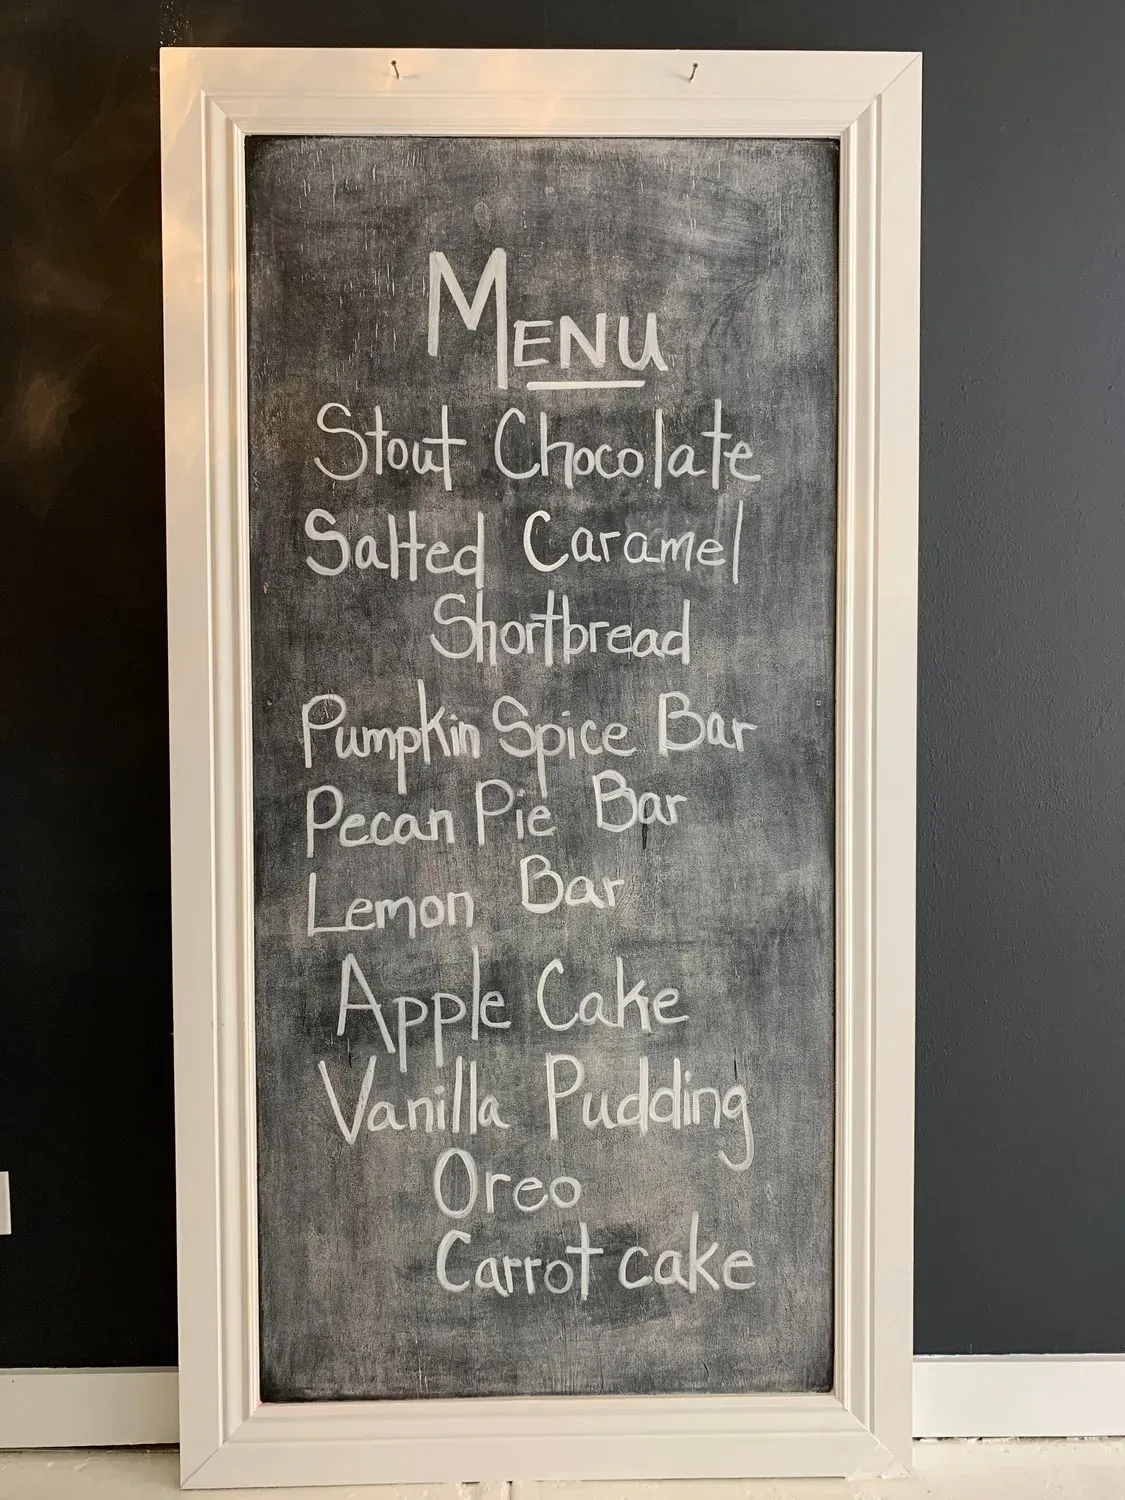 MENU
Stout Chocolate
Salted Caramel
Shortbread
Pumpkin Spice Bar
Pecan Pie Bar
Lemon Bar
Apple Cake
Vanilla Pudding
Oreo
Carrot cake